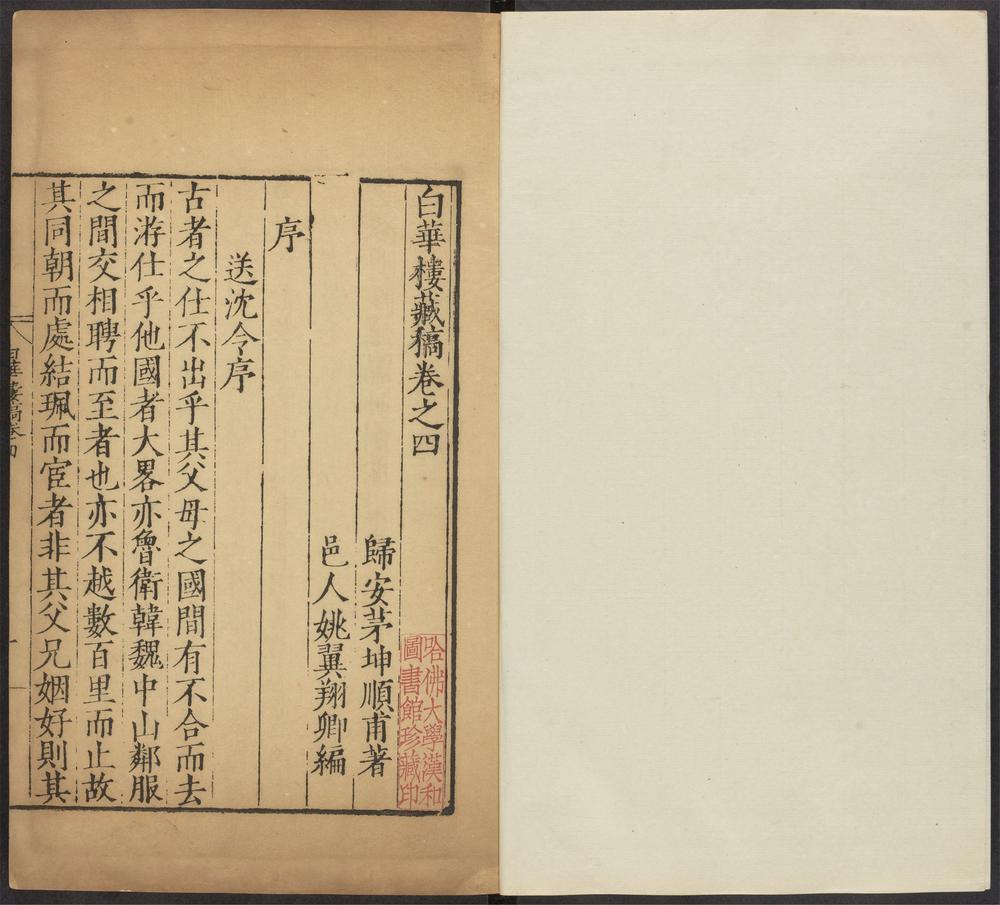 白華樓藏稿卷之四
歸安茅坤順甫著
邑人姚翼翔卿編
序
送沈令序
古者之仕不出乎其父母之國間有不合而去
而游仕乎他國者大畧亦魯衛韓魏中山鄰服
之間交相聘而至者也亦不越數百里而止故
其同朝而處結珮而宦者非其父兄姻好則其
白華樓稿卷四
哈佛大學漢和
圖書館珍藏印